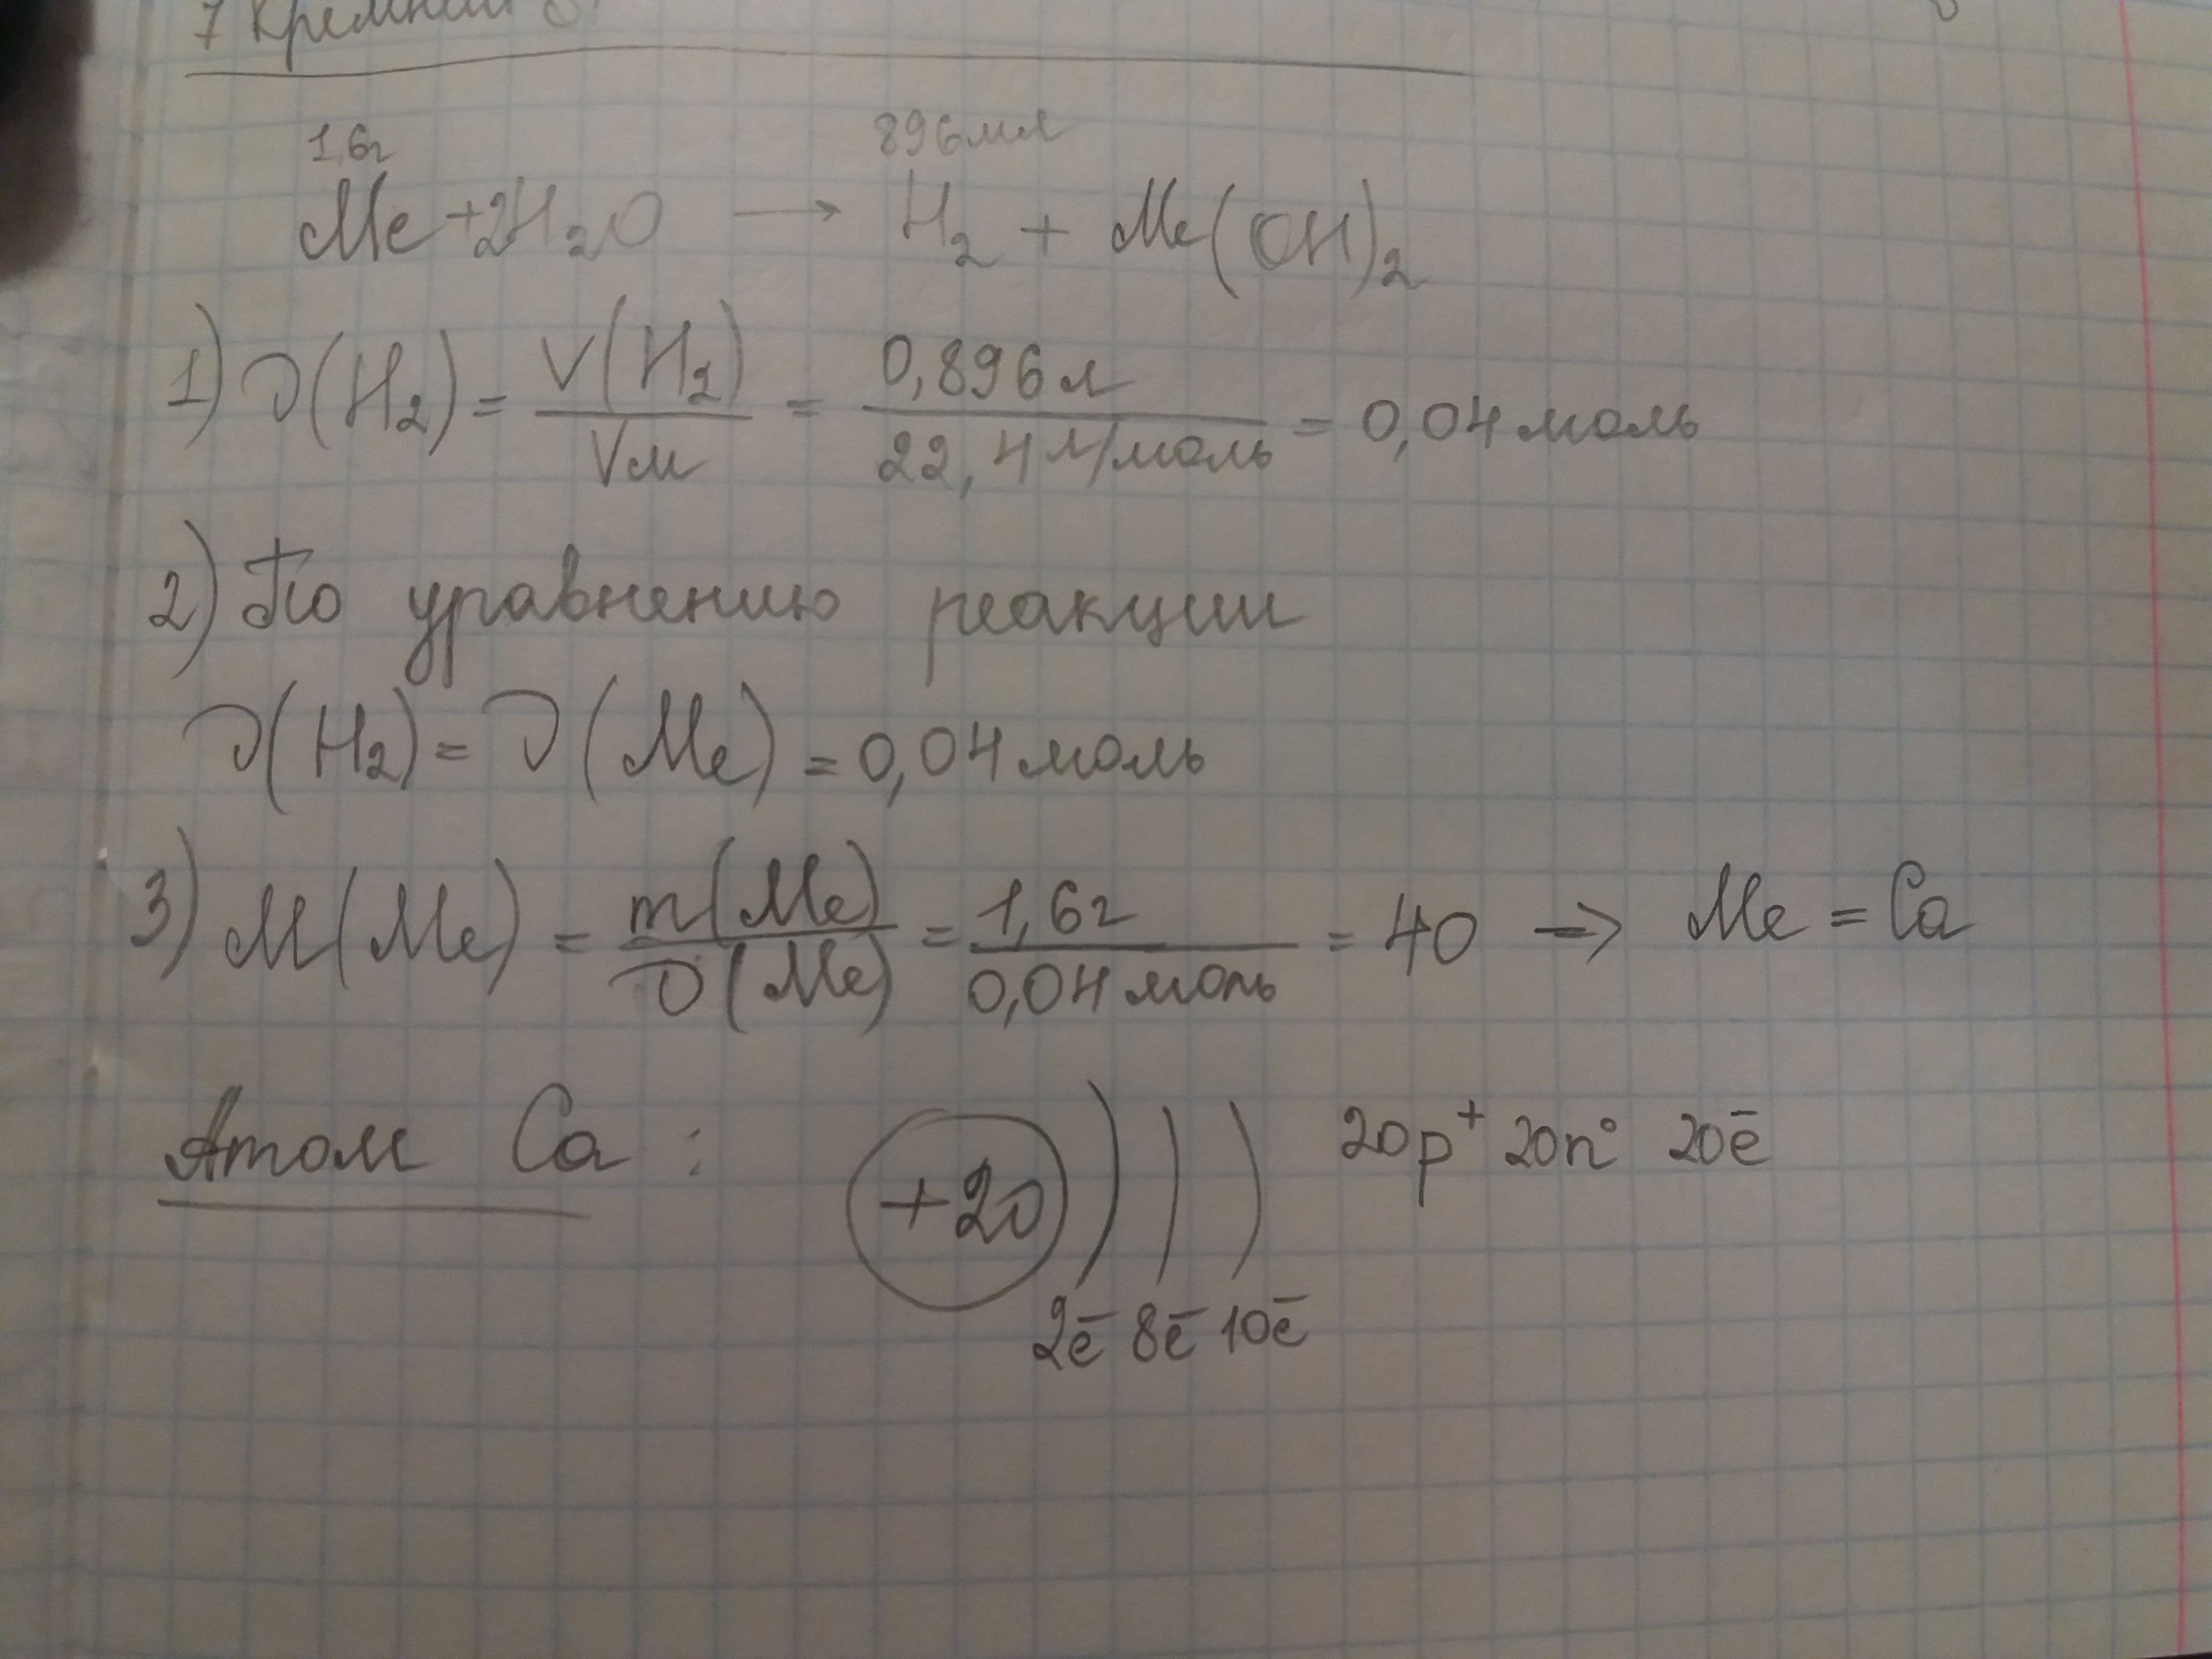 7 Кремний
1,6г 896мл
Me + 2H₂O → H₂ + Me(OH)₂
1) ν(H₂) = V(H₂)/Vм = 0,896л/22,4 л/моль = 0,04 моль
2) По уравнению реакции
ν(H₂) = ν(Me) = 0,04 моль
3) M(Me) = m(Me)/ν(Me) = 1,6г/0,04 моль = 40 → Me = Ca
Атом Ca: +20 ) ) ) 20p⁺ 20n° 20ē
2ē 8ē 10ē